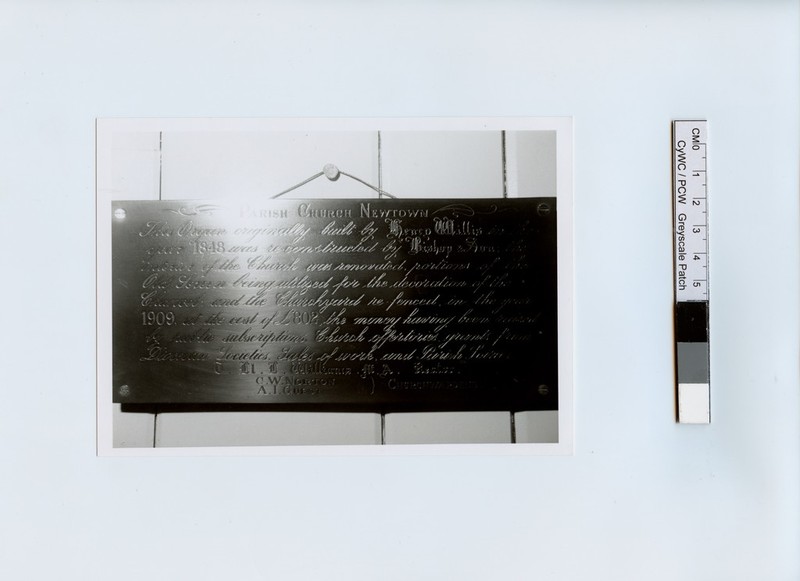 PARISH CHURCH NEWTOWN
This Organ originally built by Henry Willis in the
year 1848 was reconstructed by Bishop & Son, the
interior of the Church was renovated, portions of the
Old Screen being utilised for the decoration of the
Chancel and the Churchyard re-fenced, in the year
1909, at the cost of £802, the money having been raised
by public subscriptions, Church offertories, grants from
Diocesan Societies, Sales of work, and Parish
Williams, M.A. Rector.
C.W. NORTON
A.I.
CM 0 1 2 3 4 5
CyWC / PCW Greyscale Patch